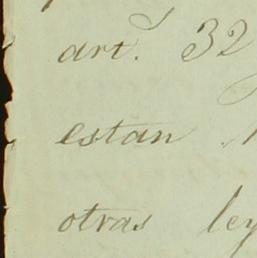 art. 32
estan
otras ley